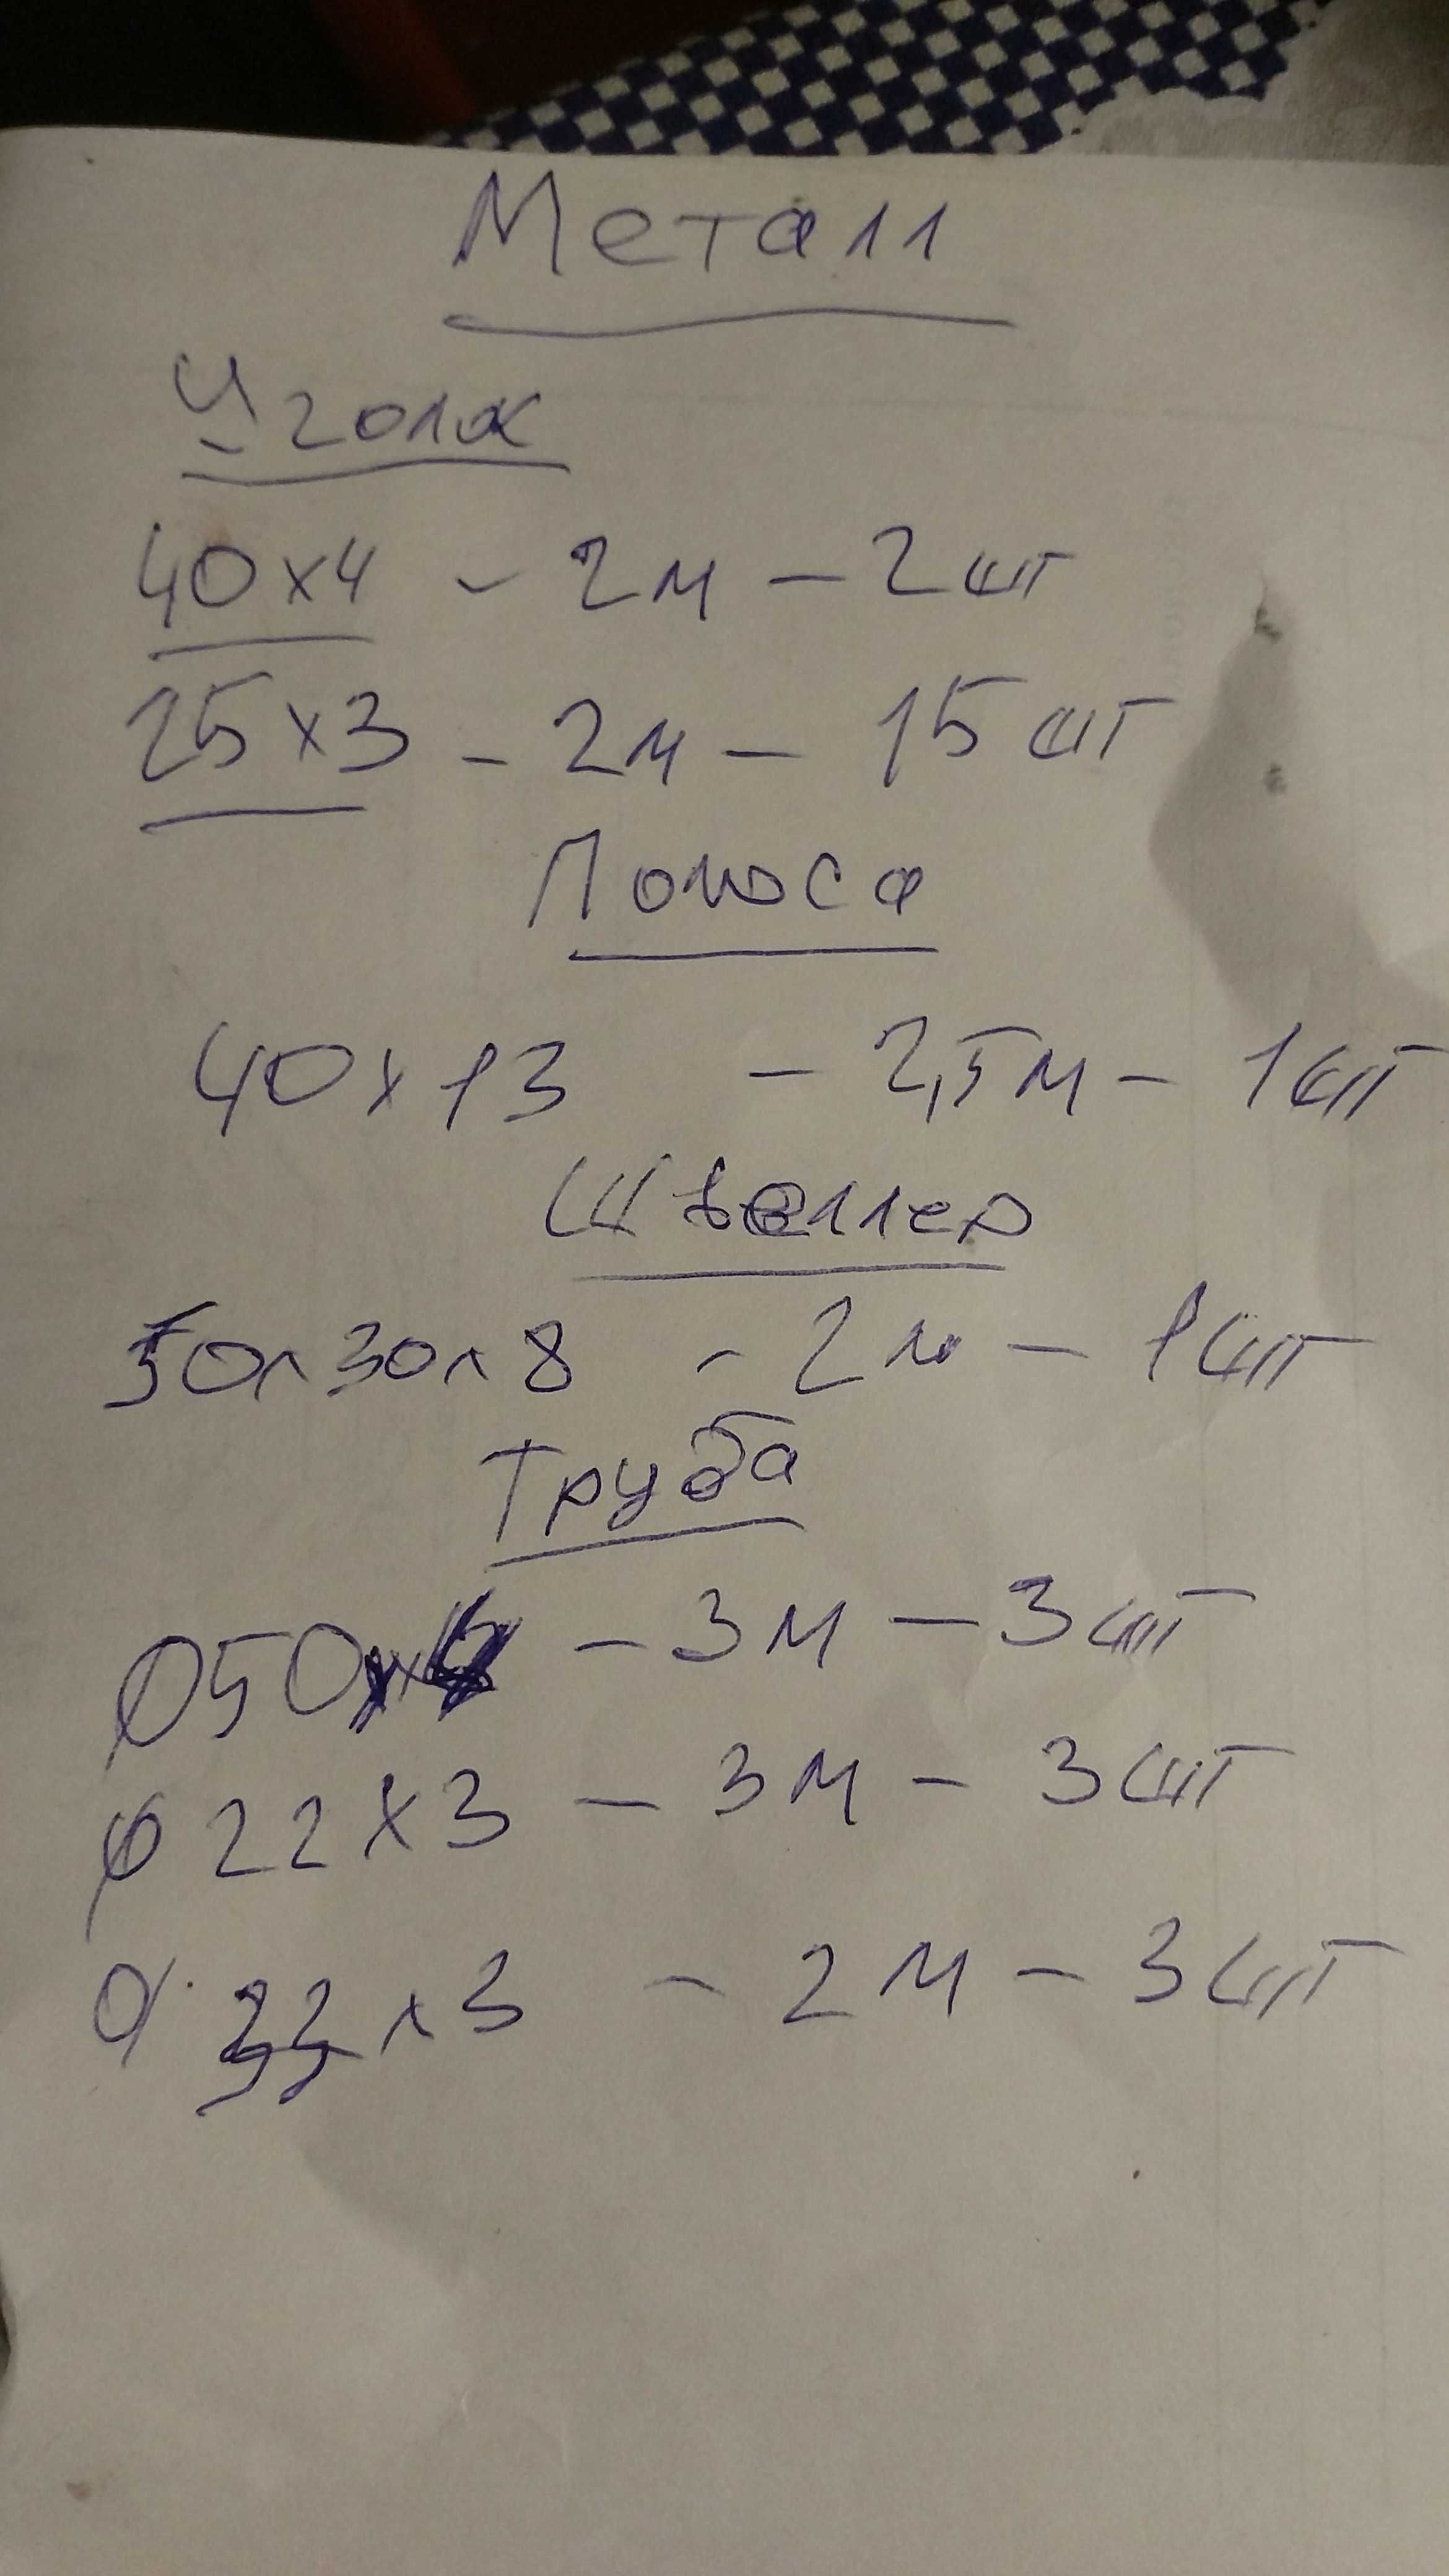 Металл
Уголок
40х4 - 2м - 2шт
25х3 - 2м - 15шт
Полоса
40х13 - 2,5м - 1шт
Швеллер
50х30х8 - 2м - 1шт
Труба
Ø50х4 - 3м - 3шт
Ø22х3 - 3м - 3шт
Ø х3 - 2м - 3шт